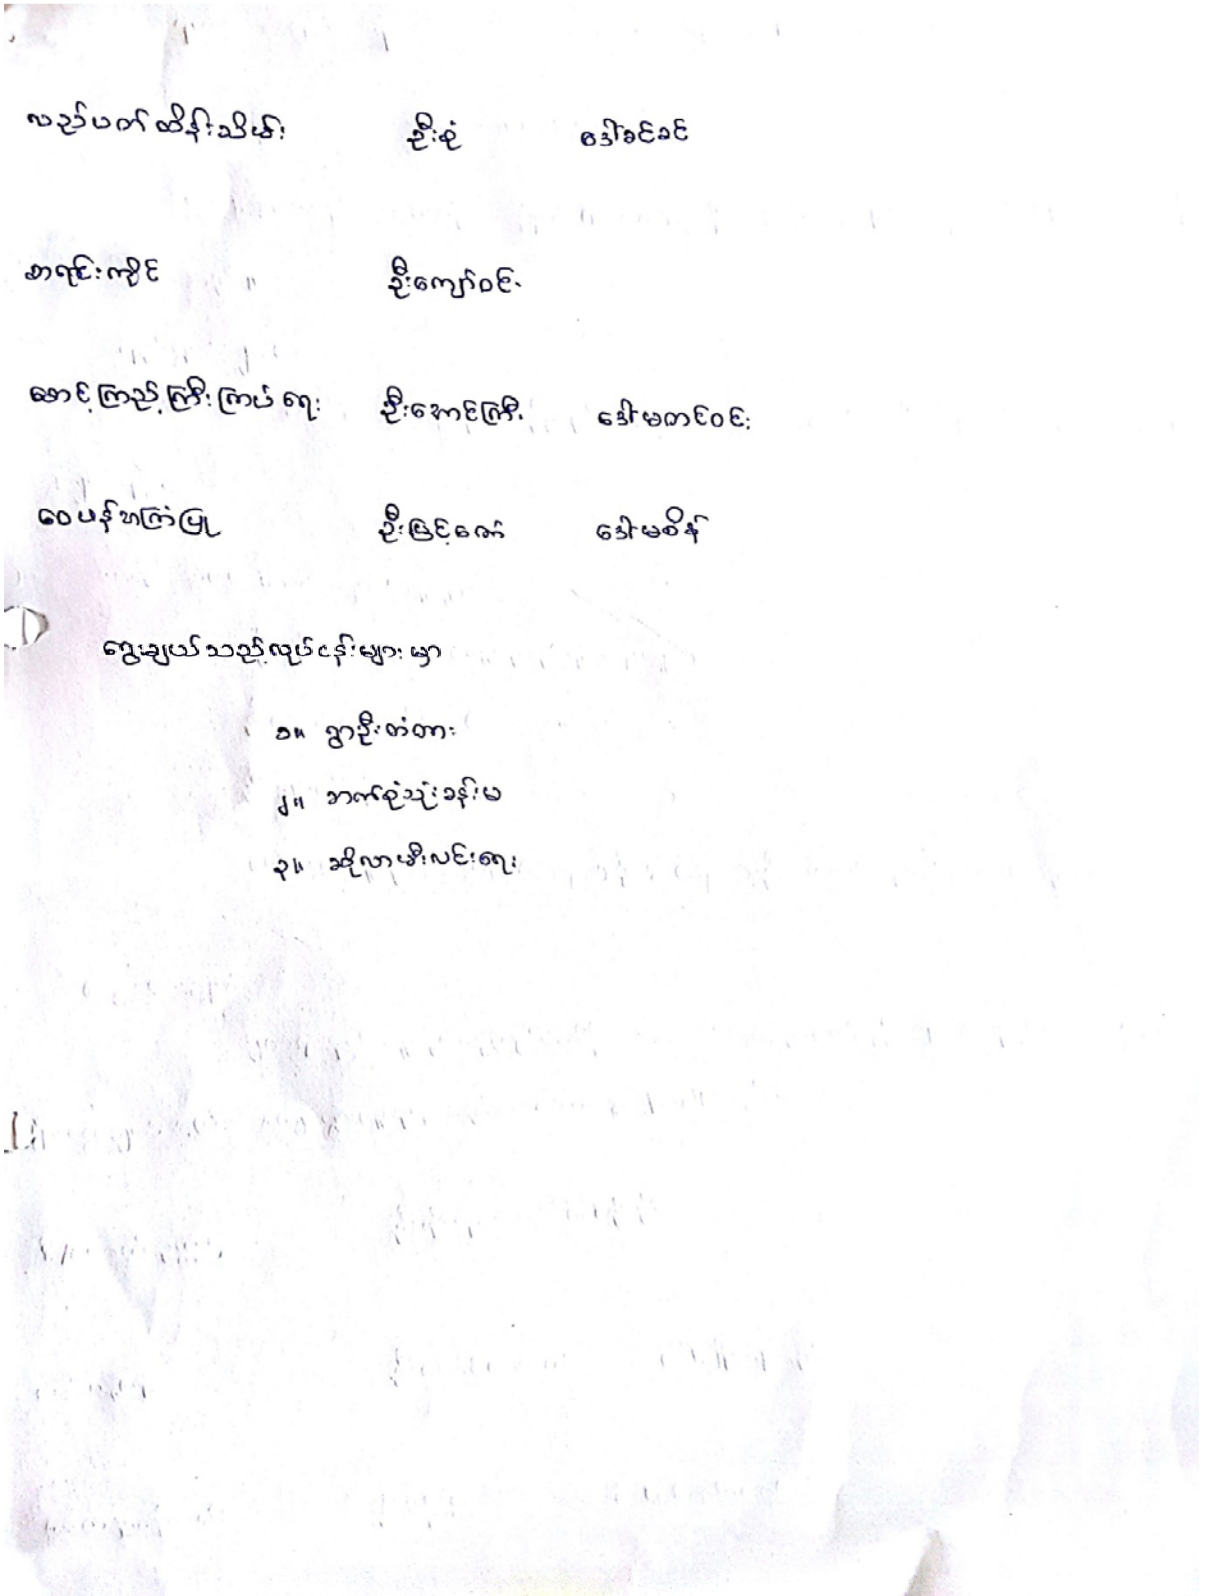 လည်ပတ်ထိန်းသိမ်း ဦးစုံ ဒေါ်ခင်ခင်
စာရင်းကိုင် " ဦးကျော်ဝင်း
စောင့်ကြည့်ကြီးကြပ်ရေး ဦးအောင်ကြီး ဒေါ်မတင်ဝင်း
ဝေဖန်အကြံပြု ဦးမြင့်ဇော် ဒေါ်မစိန်
ရွေးချယ်သည့်လုပ်ငန်းများမှာ
၁။ ရွာဦးတံတား
၂။ ဘက်စုံသုံးခန်းမ
၃။ ဆိုလာမီးလင်းရေး